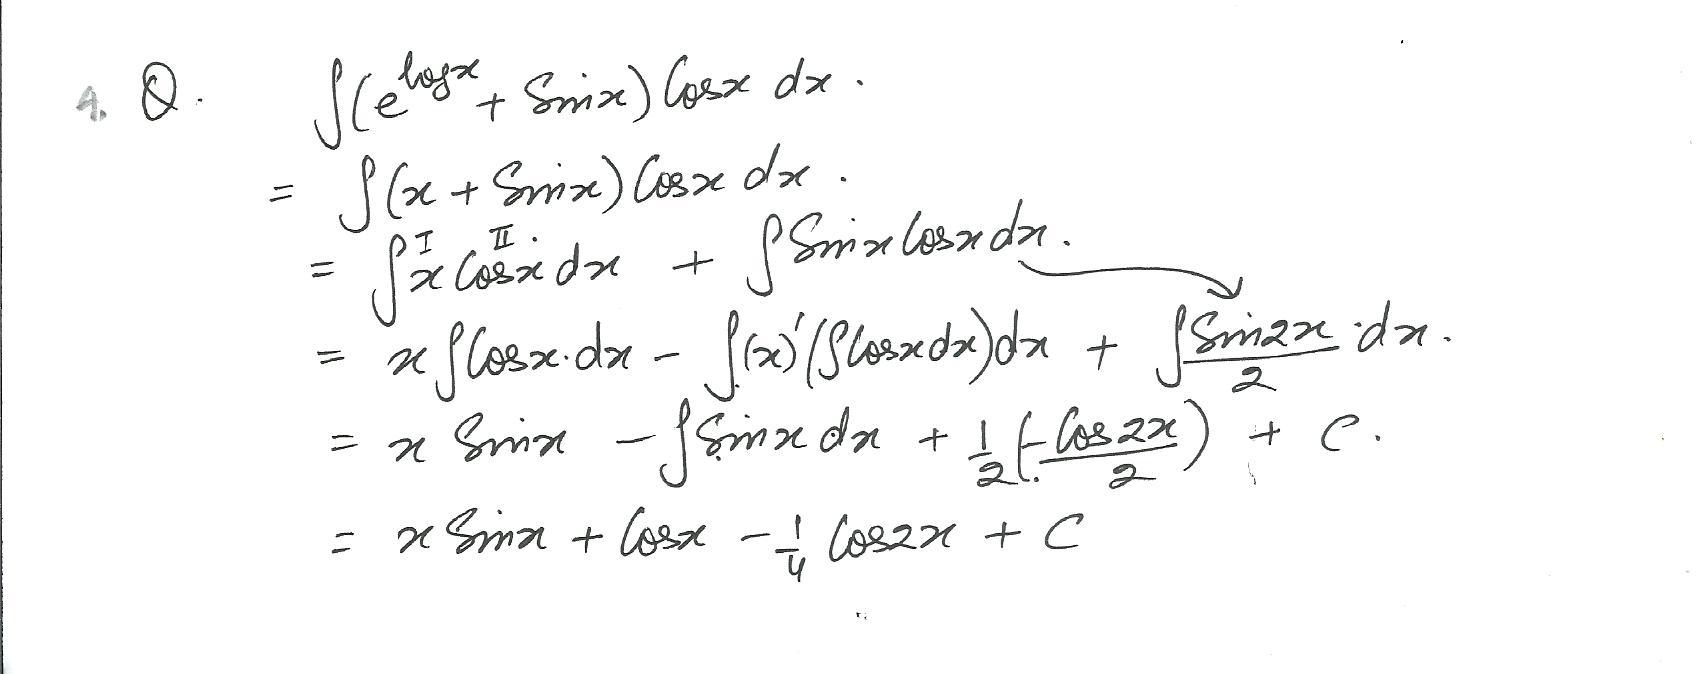 4. Q. ∫(e^logx + Sinx) Cosx dx.
= ∫(x + Sinx) Cosx dx.
= ∫ x^I Cosx^II. dx + ∫ Sinx Cosx dx.
= x ∫Cosx.dx - ∫(x)'(∫Cosxdx)dx + ∫ Sin2x/2 .dx.
= x Sinx - ∫Sinx dx + 1/2 (-Cos2x/2) + C.
= x Sinx + Cosx - 1/4 Cos2x + C